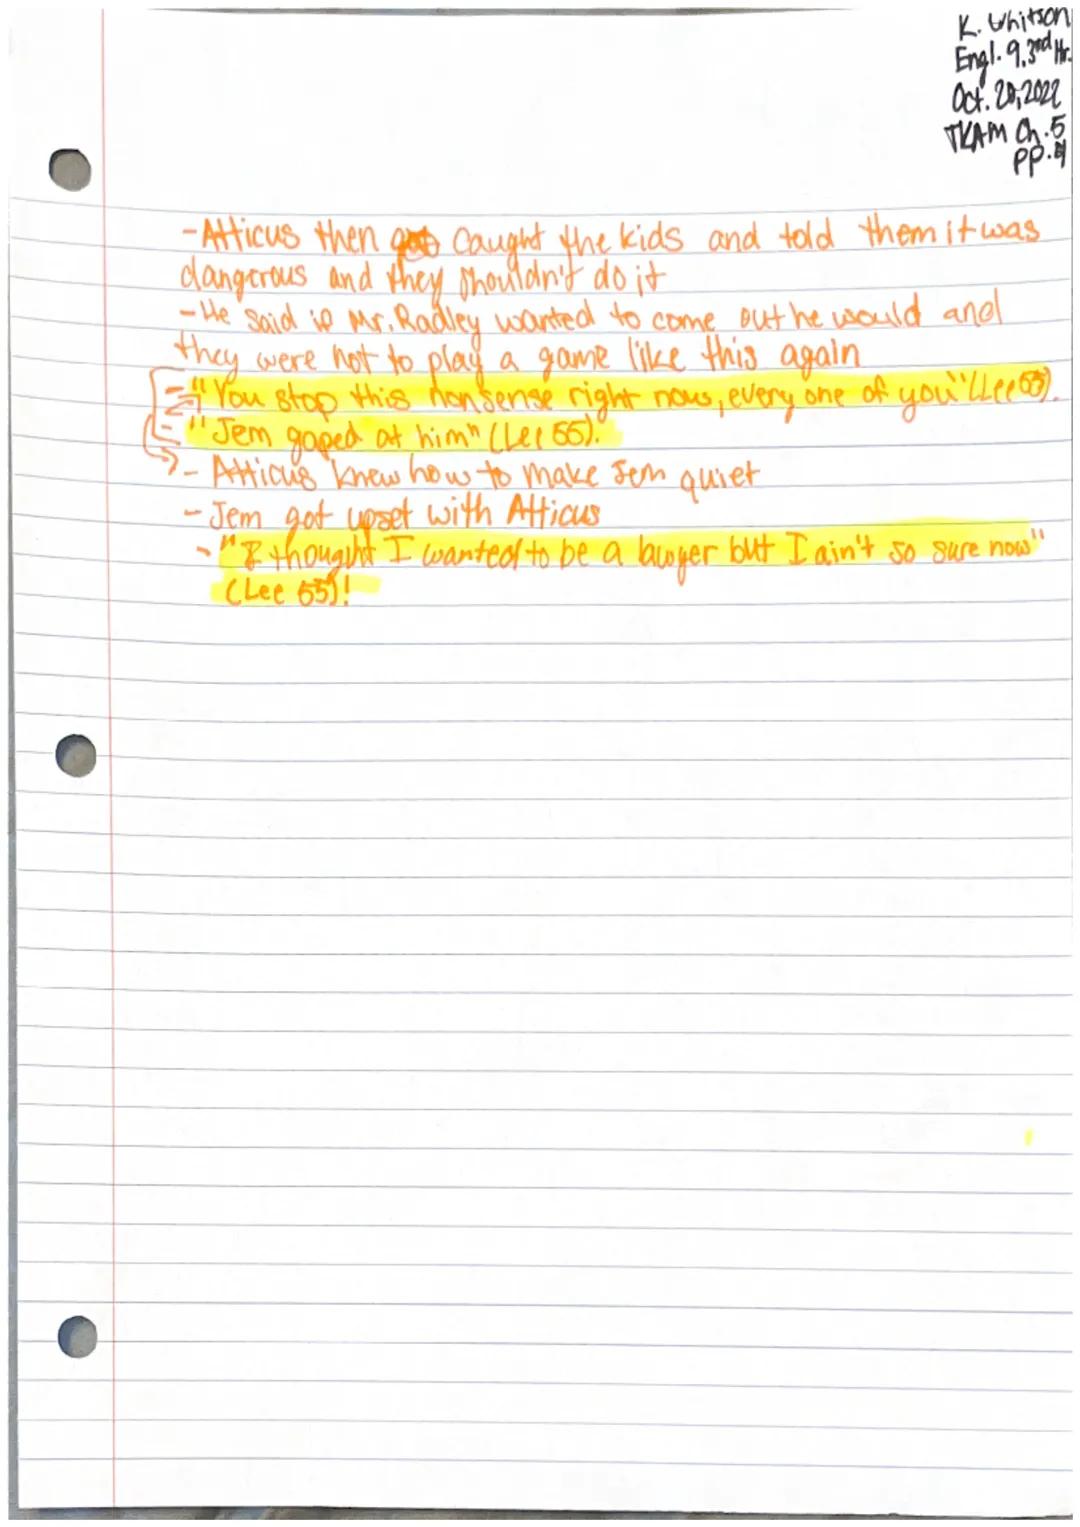 K. Whitson
Engl. 9, 3rd Hr.
Oct. 20, 2022
TKAM Ch. 5
pp. 4
- Atticus then caught the kids and told them it was
dangerous and they shouldn't do it
- He said if Mr. Radley wanted to come out he would and
they were not to play a game like this again
- "You stop this nonsense right now, every one of you" (Lee 55).
- "Jem gaped at him" (Lee 55).
- Atticus knew how to make Jem quiet
- Jem got upset with Atticus
- "I thought I wanted to be a lawyer but I ain't so sure now"
(Lee 55)!